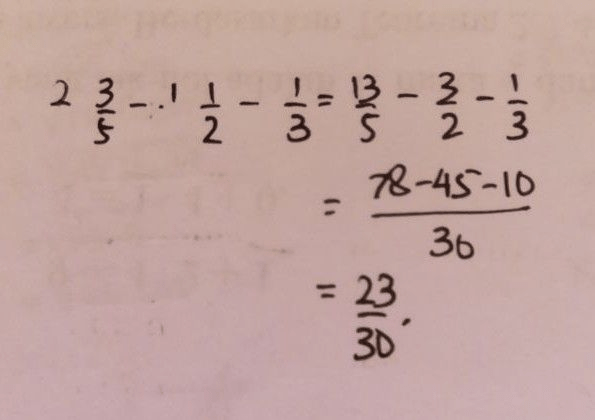 2 3/5 - 1 1/2 - 1/3 = 13/5 - 3/2 - 1/3
= 78-45-10/30
= 23/30.